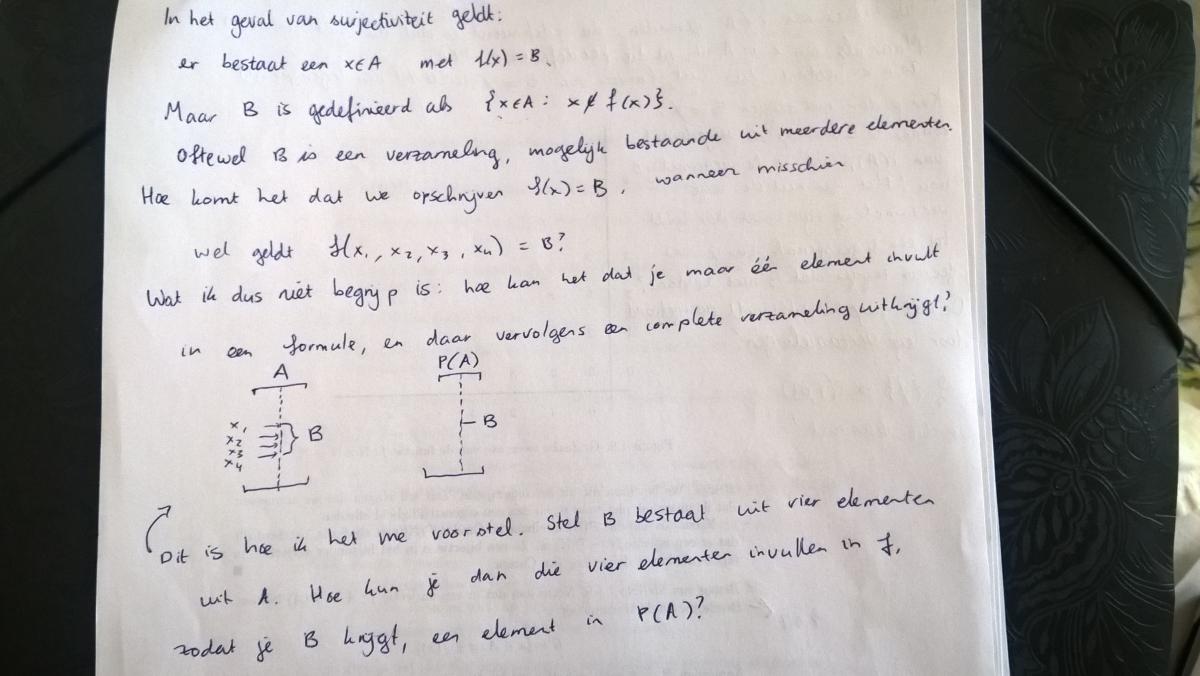 In het geval van surjectiviteit geldt:
er bestaat een x∈A met f(x) = B.
Maar B is gedefinieerd als {x∈A : x∉f(x)}.
Oftewel B is een verzameling, mogelijk bestaande uit meerdere elementen.
Hoe komt het dat we opschrijven f(x) = B, wanneer misschien
wel geldt f(x₁, x₂, x₃, x₄) = B?
Wat ik dus niet begrijp is: hoe kan het dat je maar één element invult
in een formule, en daar vervolgens een complete verzameling uitkrijgt?
A P(A)
x₁
x₂
x₃
x₄
B
B
Dit is hoe ik het me voorstel. Stel B bestaat uit vier elementen
uit A. Hoe kun je dan die vier elementen invullen in f,
zodat je B krijgt, een element in P(A)?